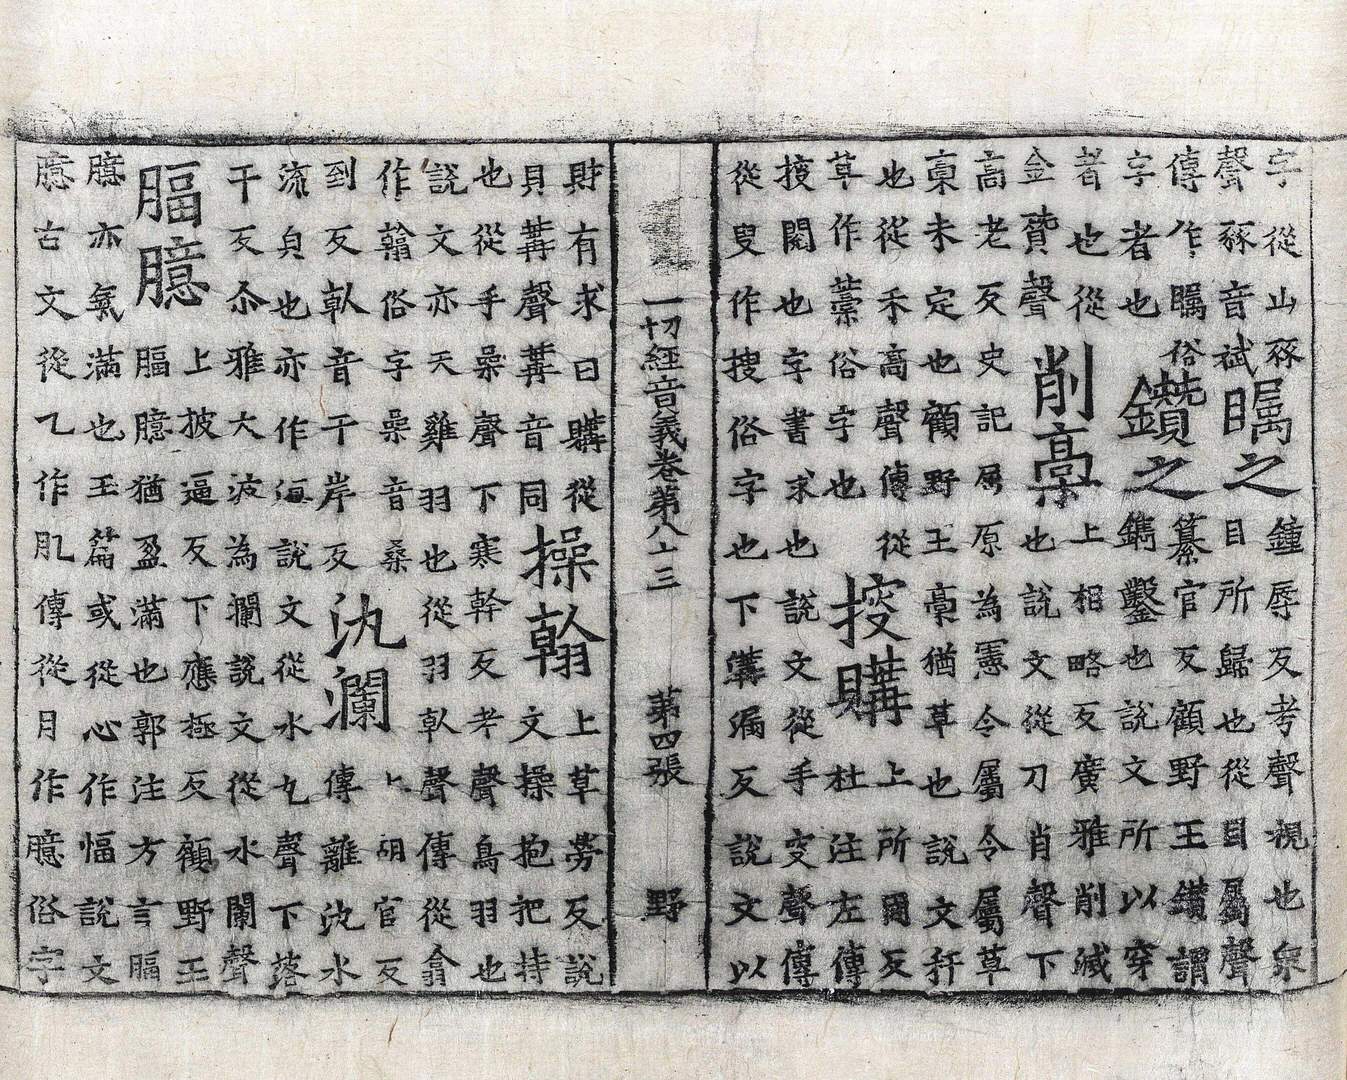 字從山豩
聲豩音斌
矚之
鐘辱反考聲視也衆
目所歸也從目屬聲
傳作矚俗
字者也
鑽之
纂官反顧野王鑽謂
鐫鑿也說文所以穿
者也從
金贊聲
削稾
上相略反廣雅削減
也說文從刀肖聲下
高老反史記屬原為憲令屬令屬草
稾未定也顧野王稾猶草也說文秆
也從禾高聲傳從
草作藁俗字也
搜購
上所留反
杜注左傳
搜閱也字書求也說文從手叜聲傳
從叟作搜俗字也下溝漏反說文以
一切經音義卷第八十三 第四張 野
財有求曰購從
貝冓聲冓音同
操翰
上草勞反說
文操抱把持
也從手喿聲下寒幹反考聲鳥羽也
說文亦天雞羽也從羽倝聲傳從翕
作翰俗字喿音桑
到反倝音干岸反
氿瀾
上胡官反
傳離氿水
流皃也亦作說文從水九聲下落
干反尒雅大波為瀾說文從水闌聲
腷臆
上披逼反下應極反顧野王
腷臆猶盈滿也郭注方言腷
臆亦氣滿也玉篇或從心作愊說文
臆古文從乙作肊傳從月作臆俗字